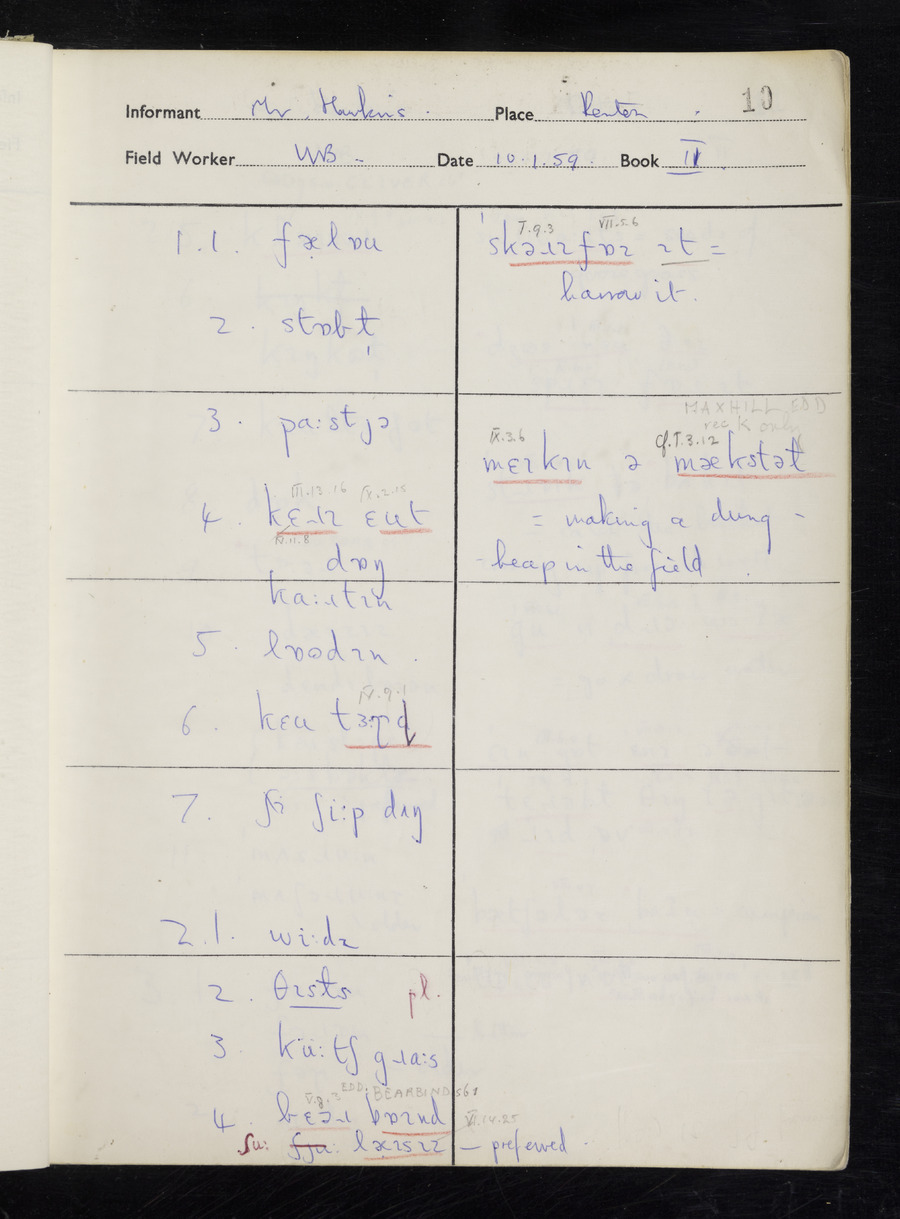 10
Informant Mr. Hawkins. Place Kenton.
Field Worker WB. Date 10.1.59. Book II
1.1. fælɒu
2. stɒbt
3. pa:stjə
III.13.16 IX.2.15
4. kɛɹɪ ɛut
IV.11.8
dɒŋ
ka:ɹtɪn
5. lɒədɪn.
IV.9.1
6. kɛu tɜɽɖ
7. ʃi ʃi:p dɪŋ
2.1. wi:dz
2. θɪsts pl.
3. kü:tʃ gɹa:s
EDD: BEARBIND sb1
V.8.3
4. bɛəɹ bɒɪnd
VI.14.25
su: lɒɪsɪz – preferred
I.9.3 VII.5.6
'skəɹɪfɒɪ ɪt =
harrow it.
MAXHILL EDD
rec K only
IX.3.6 cf. I.3.12
mɛɪkɪn ə mækstəl
= making a dung -
- heap in the field